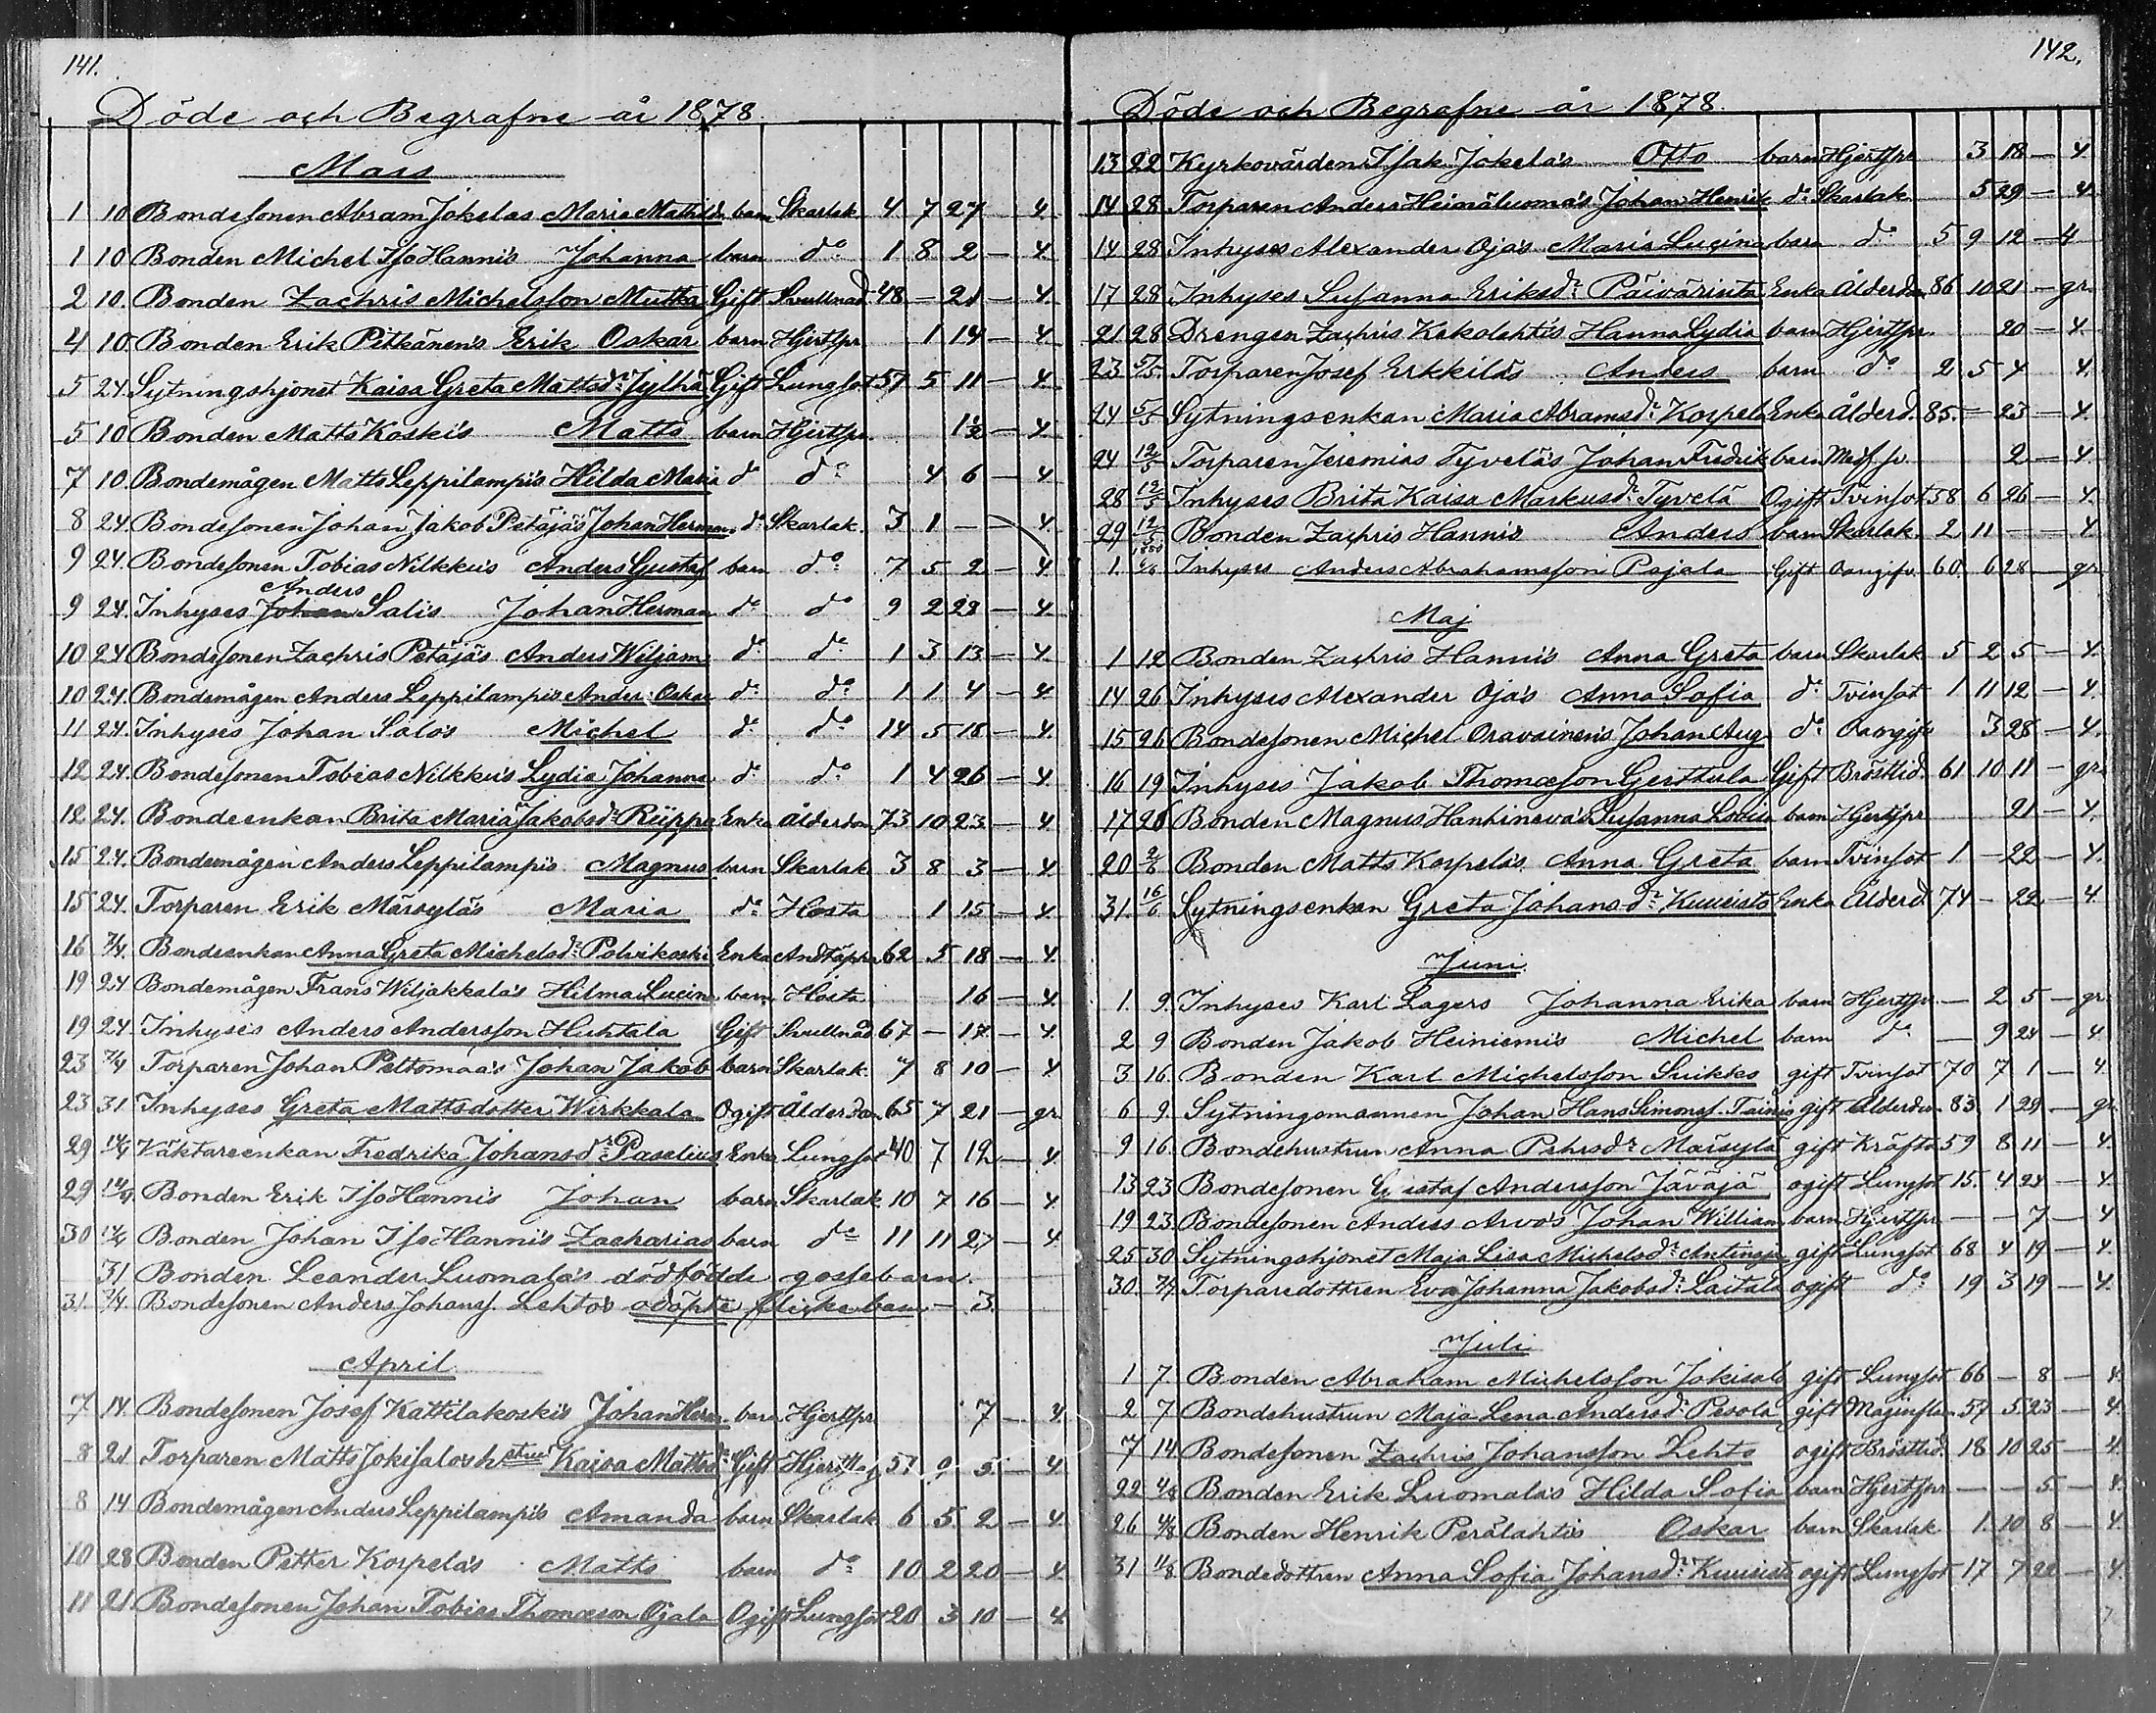 141.
Döde och Begrafne år 1878.
Mars
1 10 Bondesonen Abram Jokelas Maria Mathilda barn Skarlak 4 7 27 4.
1 10 Bonden Michel IsoHannis Johanna barn do 1 8 2 — 4.
2 10. Bonden Zachris Michelsson Mutka Gift Svullnad 48 — 21 — 4.
4 10. Bonden Erik Pitkänens Erik Oskar barn Hjertspr. 1 14 — 4.
5 24. Sytningshjonet Kaisa Greta Mattsdr Jylhä Gift Lungsot 57 5 11 — 4.
5 10 Bonden Matts Koskis Matts barn Hjertspr. 1½ — 4.
7 10. Bondemågen Matts Leppilampis Hilda Maria do do 4 6 — 4
8 24. Bondesonen Johan Jakob Petäjäs Johan Herman do Skarlak 3 1 — — 4.
9 24. Bondesonen Tobias Nilkkus Anders Gustaf barn do 7 5 2 — 4.
Anders
9 24. Inhyses Johan Salis Johan Herman do do 9 2 28 — 4.
10 24 Bondesonen Zachris Petäjäs Anders Wiljam do do 1 3 13 — 4.
10 24. Bondemågen Anders Leppilampis Anders Oskar do do 1 1 4 — 4.
11 24. Inhyses Johan Salos Michel do do 14 5 18 — 4.
12 24. Bondesonen Tobias Nilkkus Lydia Johanna do do 1 4 26 — 4.
12 24. Bondeenkan Brita Maria Jakobsdr Riippa Enka Ålderdom 73 10 23 — 4
15 24. Bondemågen Anders Leppilampis Magnus barn Skarlak 3 8 3 — 4
15 24. Torparen Erik Märsyläs Maria do Hosta 1 15 — 4.
16 7/4. Bondeenkan Anna Greta Michelsdr Polvikoski Enka Andtäppa 62 5 18 — 4.
19 24 Bondemågen Frans Wiljakkalas Hilma Lucina barn Hosta 16 — 4.
19 24. Inhyses Anders Andersson Huhtala Gift Svullnad 67 — 17 — 4.
23 7/4 Torparen Johan Peltomaas Johan Jakob barn Skarlak 7 8 10 — 4
23 31 Inhyses Greta Mattsdotter Wirkkala Ogift Ålderdom 65 7 21 — gr.
29 14/4 Väktareenkan Fredrika Johansdr Paselius Enka Lungsot 40 7 12 — 4.
29 14/4 Bonden Erik IsoHannis Johan barn Skarlak 10 7 16 — 4.
30 14/4 Bonden Johan IsoHannis Zacharias barn do 11 11 27 — 4.
31 Bonden Leander Luomalas dödfödde gossebarn.
31. 7/4. Bondesonen Anders Johanss. Lehtos odöpte flickebarn — 3.
April
7 14. Bondesonen Josef Kattilakoskis Johan Herm. barn Hjertspr. 7 — 4.
8 21 Torparen Matts Jokisalos hstru Kaisa Mattsdr Gift 57 9 5 — 4
8 14 Bondemågen Anders Leppilampis Amanda barn Skarlak 6 5 2 — 4
10 28 Bonden Petter Korpelas Matts barn do 10 2 20 — 4.
11 21. Bondesonen Johan Tobias Thomasson Ojala Ogift Lungsot 20 3 10 — 4.
142.
Döde och Begrafne år 1878.
13 22 Kyrkovärden Isak Jokelas Otto barn Hjertspr 3 18 — 4.
14 28 Torparen Anders Heinäluomas Johan Henrik do Skarlak 5 29 — 4.
14 28 Inhyses Alexander Ojas Maria Lucina barn do 5 9 12 — 4
17 28 Inhyses Susanna Eriksdr Päivärinta Enka Ålderdom 86 10 21 — gr.
21 28 Drengen Zachris Kakolahtis Hanna Lydia barn Hjertspr. 20 — 4.
23 5/5. Torparen Josef Erkkiläs Anders barn do 2 5 4 4.
24 5/5 Sytningsenkan Maria Abramsdr Korpela Enka Ålderd. 85. — 23 — 4.
24 12/5 Torparen Jeremias Tyveläs Johan Fredrik barn 2 — 4.
28 12/5 Inhyses Brita Kaisa Markusdr Tyvelä Ogift Tvinsot 58 6 26 — 4.
29 12/5 Bonden Zachris Hannis Anders barn Skarlak 2 11 — — 4.
1. Inhyses Anders Abrahamsson Pajala Gift Oangifv. 60. 6 28 — gr
Maj
1 12 Bonden Zachris Hannis Anna Greta barn Skarlak 5 2 5 — 4.
14 26 Inhyses Alexander Ojas Anna Sofia do Tvinsot 1 11 12 — 4.
15 26 Bondesonen Michel Oravainens Johan Aug. do Oangifv 3 28 — 4.
16 19 Inhyses Jakob Thomasson Gerttula Gift Bröstlid. 61 10 11 — gr.
17 26 Bonden Magnus Hanhinevas Susanna Lovisa barn Hjertspr 21 — 4.
20 2/6 Bonden Matts Korpelas Anna Greta barn Tvinsot 1 — 22 — 4.
31. 16/6 Sytningsenkan Greta Johansdr Kuusisto Enka Ålderd. 74 — 22 — 4
Juni
1. 9. Inhyses Karl Lagers Johanna Erika barn Hjertspr. — 2 5 — gr
2 9 Bonden Jakob Heiniemis Michel barn do — 9 24 — 4
3 16 Bonden Karl Michelsson Suikko gift Tvinsot 70 7 1 — 4
6 9. Sytningsmannen Johan Hans Simonss. Tainio gift Ålderdom 83. 1 29 — gr
9 16. Bondehustrun Anna Pehrsdr Märsylä gift Kräfta 59 8 11 — 4.
13 23 Bondesonen Gustaf Andersson Jäväjä ogift Lungsot 15. 4 24 — 4.
19 23. Bondesonen Anders Arvos Johan William barn Hjertspr — — 7 — 4
25 30 Sytningshjonet Maja Lisa Michelsdr Anttinoja gift Lungsot 68 4 19 — 4.
30. 7/7. Torparedottren Eva Johanna Jakobsdr Laitala ogift do 19 3 19 — 4.
Juli
1 7. Bonden Abraham Michelsson Jokisalo gift Lungsot 66 — 8 — 4.
2 7 Bondehustrun Maja Lena Andersdr Pesola gift 57 5 23 — 4.
7 14. Bondesonen Zachris Johansson Lehto ogift Bröstlid. 18 10 25 — 4.
22 4/8 Bonden Erik Luomalas Hilda Sofia barn Hjertspr — — 5 — 4.
26 4/8 Bonden Henrik Perälahtis Oskar barn Skarlak 1. 10 8 — 4.
31 11/8 Bondedottren Anna Sofia Johansdr Kuusisto ogift Lungsot 17 7 22 — 4.